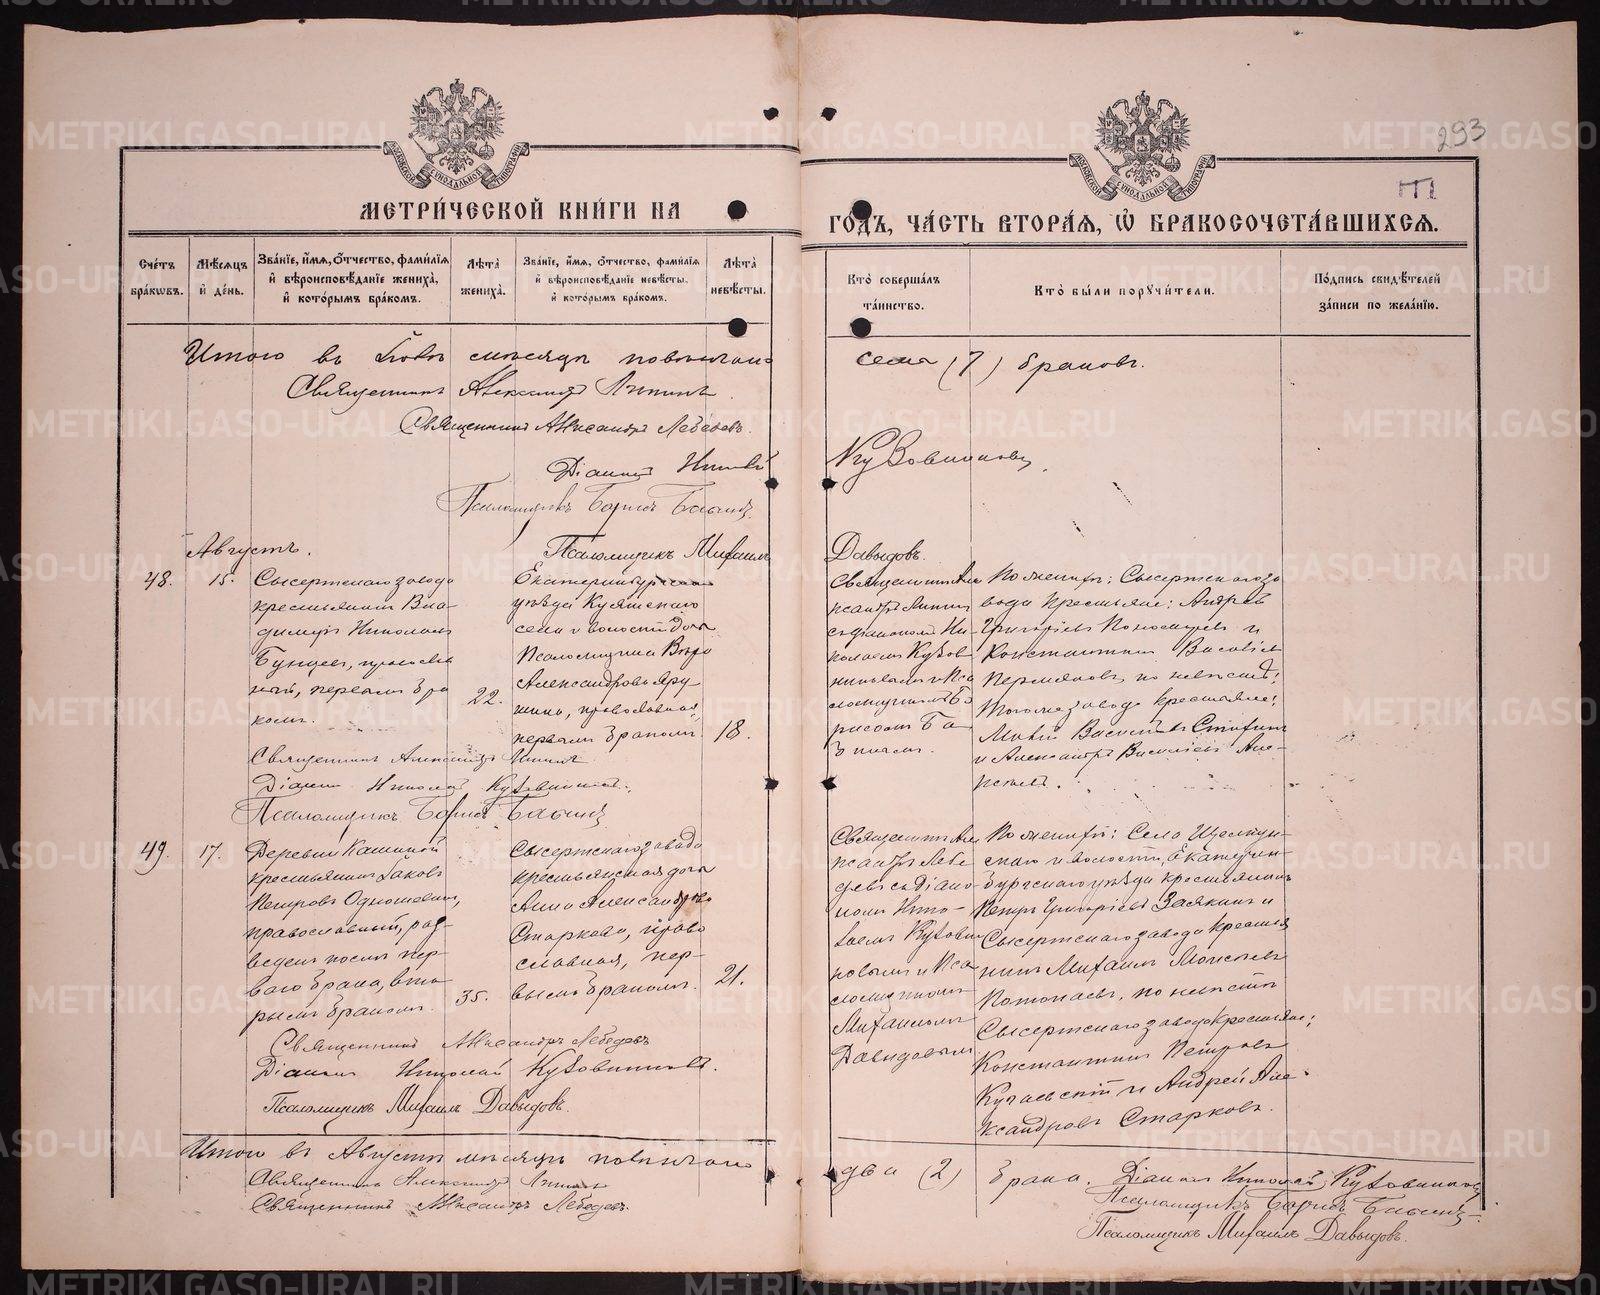 293
МЕТРИ́ЧЕСКОЙ КНИ́ГИ НА
ГО́ДЪ, ЧА́СТЬ ВТОРА́Я, Ѡ БРАКОСОЧЕТА́ВШИХСЯ.
Сче́тъ бра́кѡвъ.
Мѣ́сяцъ и де́нь.
Зва́нїе, и́мя, ѻ́тчество, фами́лїя и вѣроисповѣ́данїе жениха̀, и кото́рымъ бра́комъ.
Лѣта̀ жениха̀.
Зва́нїе, и́мя, ѻ́тчество, фами́лїя и вѣроисповѣ́данїе невѣ́сты, и кото́рымъ бра́комъ.
Лѣта̀ невѣ́сты.
Кто̀ соверша́лъ та́инство.
Кто̀ бы́ли порꙋчи́тели.
По́дпись свидѣ́телей за́писи по жела́нїю.
Итого въ Іюлѣ мѣсяцѣ повѣнчано
семь (7) браковъ.
Священникъ Александръ
Священникъ Александръ Лебедевъ.
Діаконъ Николай
Кузовниковъ
Псаломщикъ Борисъ
Августъ.
Псаломщикъ Михаилъ
Давыдовъ.
48.
15.
Сысертскаго завода
крестьянинъ Вла-
димиръ Николаевъ
православ
ный, первымъ бра
комъ.
22.
Екатеринбургскаго
уѣзда
села и волости дочь
Псаломщика Вѣра
Александрова
православная,
первымъ бракомъ.
18.
Священникъ Але
ксандръ
съ діакономъ Ни-
колаемъ Кузов
никовымъ и Пса
ломщикомъ Бо
рисомъ Ба
По женихѣ: Сысертскаго за
вода крестьяне: Андрей
Григорьевъ и
Константинъ
Пермяковъ, по невѣстѣ:
Тогоже завода крестьяне:
и Александръ Васильевъ Але-
Священникъ Александръ
Діаконъ Николай Кузовниковъ.
Псаломщикъ Борисъ
49.
17.
Деревни Кашиной
крестьянинъ Іаковъ
Петровъ
православный, раз-
веденъ послѣ пер-
ваго брака, вто-
рымъ бракомъ.
35.
Сысертскаго завода
крестьянская дочь
Анна Александрова
Старкова, право
славная, пер-
вымъ бракомъ.
21.
Священникъ Але
ксандръ Лебе
девъ съ діако
номъ Нико-
лаемъ Кузовни
ковымъ и Пса
ломщикомъ
Михаиломъ
Давыдовымъ
По женихѣ: Села Щелкун-
скаго и волости, Екатерин-
бургскаго уѣзда крестьянинъ
Петръ Григорьевъ Заякинъ и
Сысертскаго завода крестья
нинъ Михаилъ Моисеевъ
по невѣстѣ
Сысертскаго завода крестьяне:
Константинъ Петровъ
и Андрей Але-
ксандровъ Старковъ.
Священникъ Александръ Лебедевъ
Діаконъ Николай Кузовниковъ.
Псаломщикъ Михаилъ Давыдовъ.
Итого въ Августѣ мѣсяцѣ повѣнчано
два (2) брака. Діаконъ Николай Кузовниковъ
Священникъ Александръ
Псаломщикъ Борисъ
Священникъ Александръ Лебедевъ.
Псаломщикъ Михаилъ Давыдовъ.
METRIKI.GASO-URAL.RU